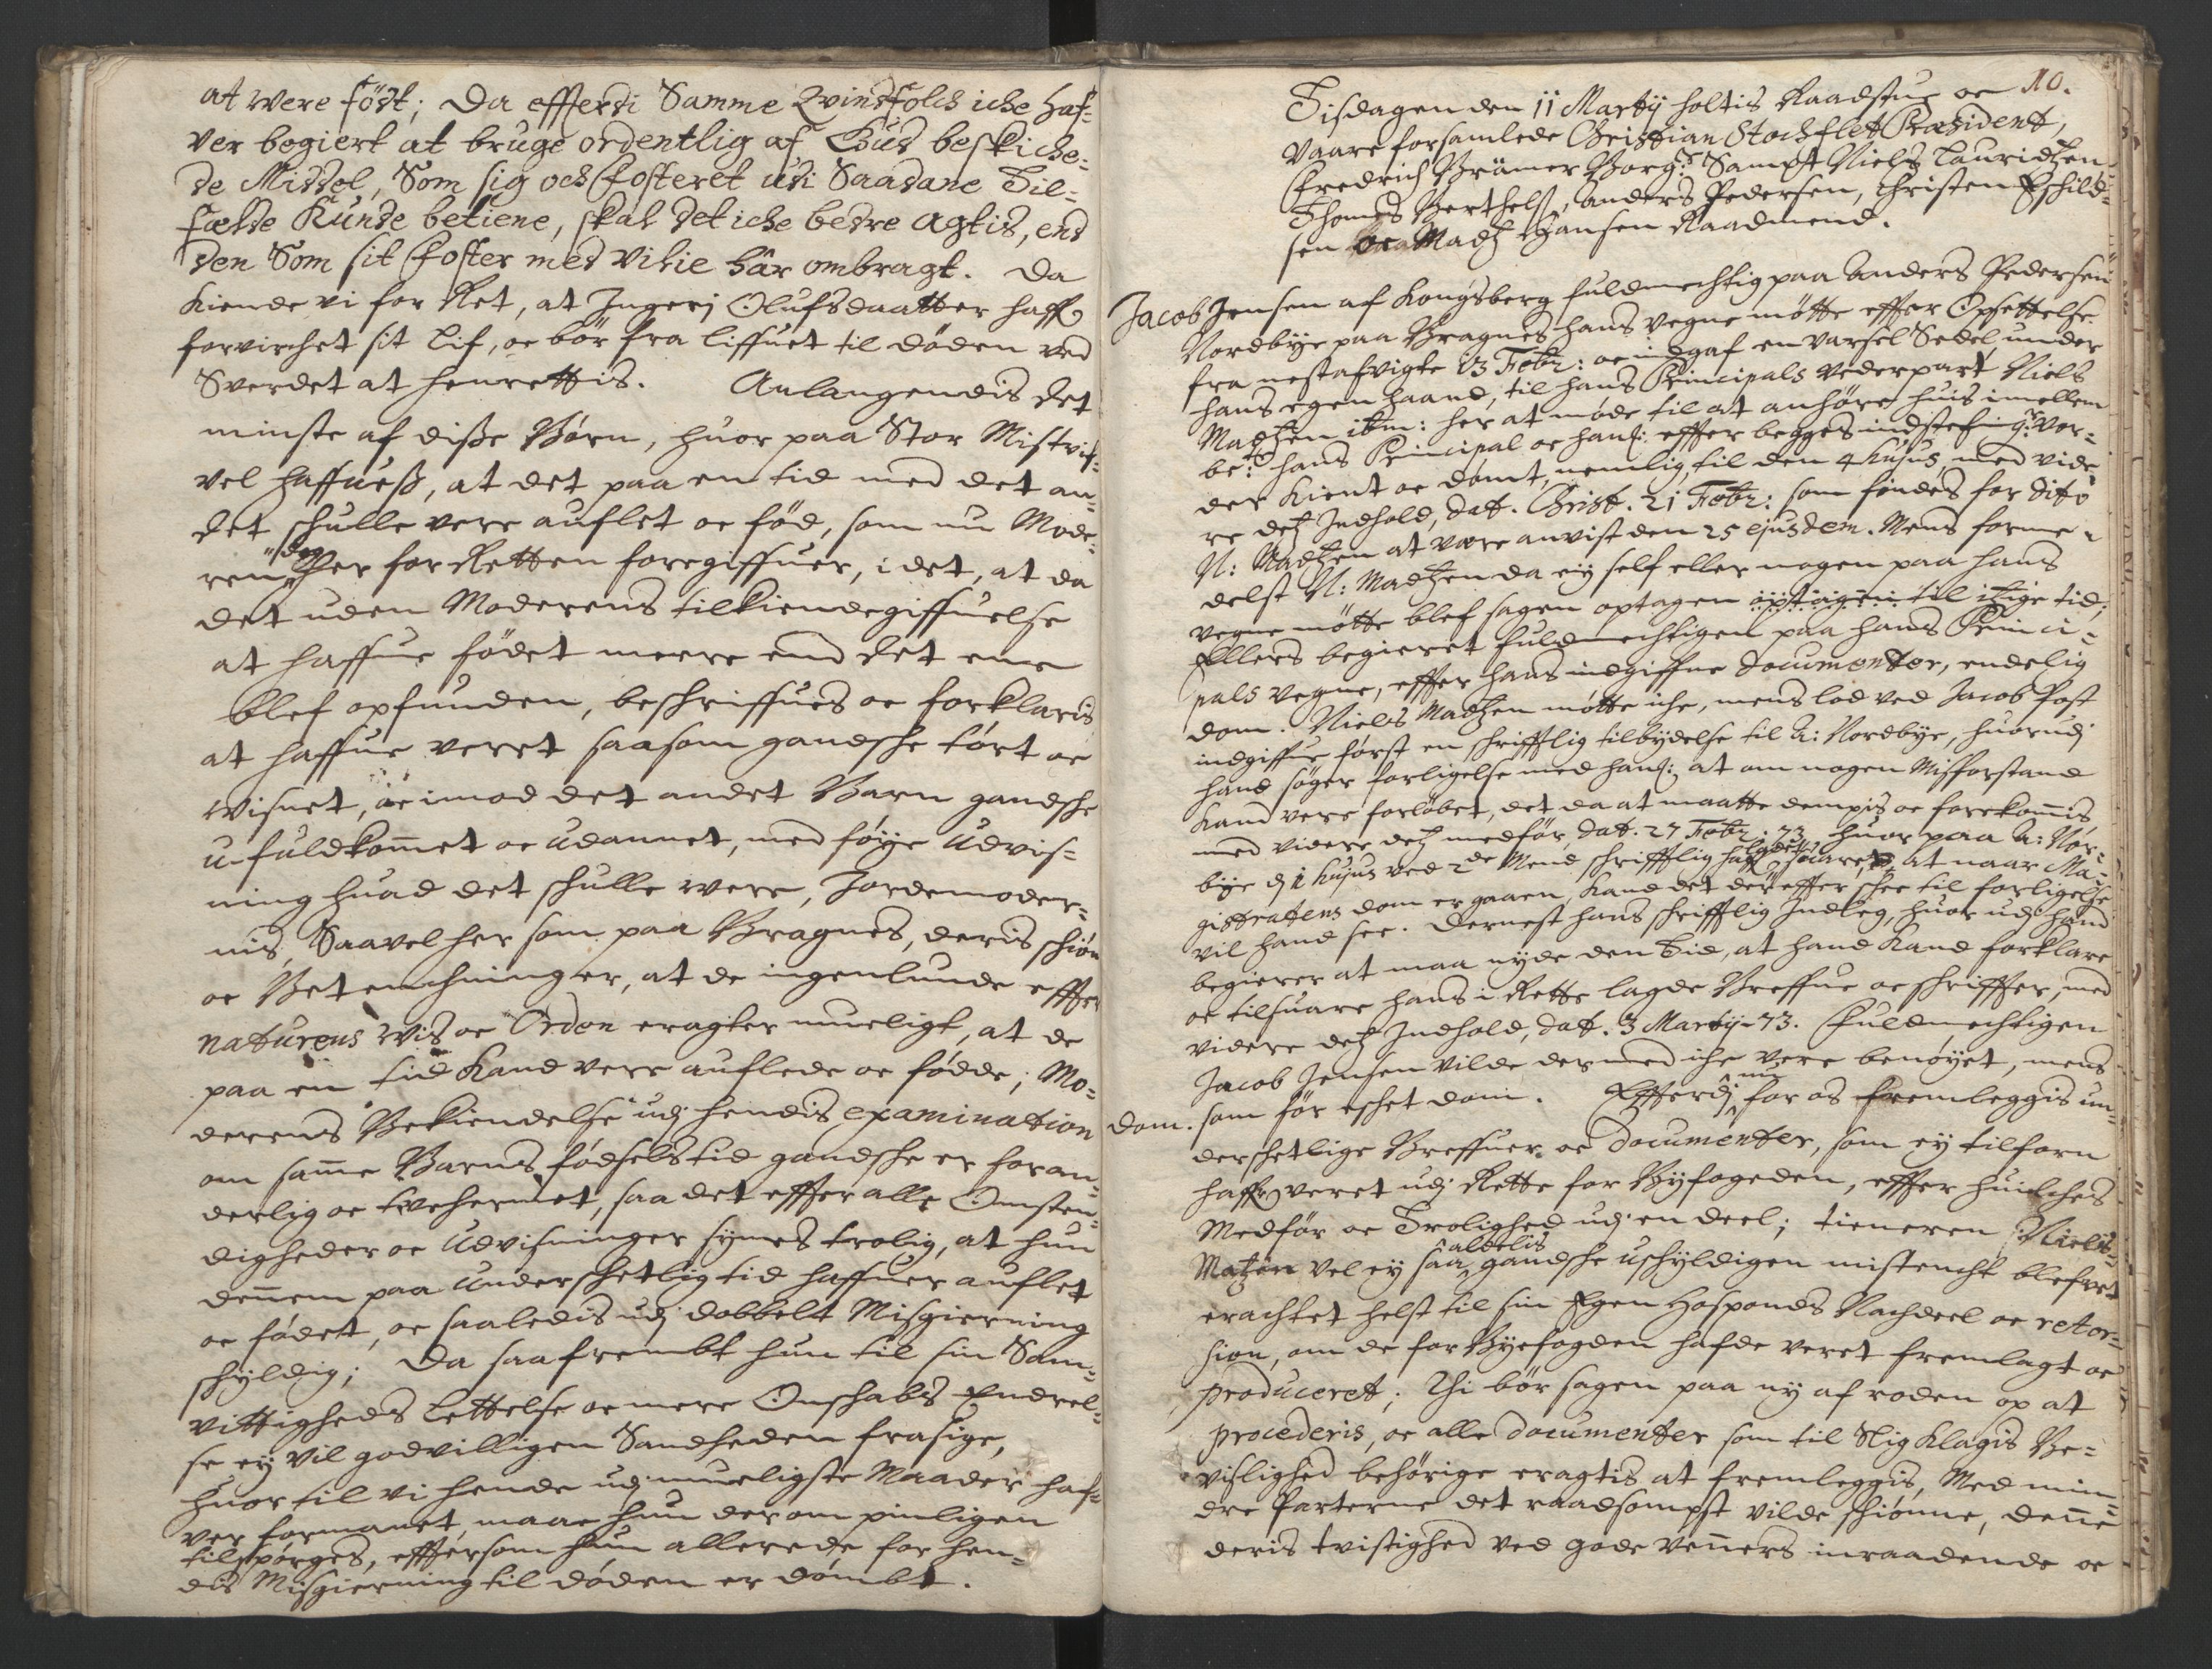 at were föst; Da effterdi Samme Qvindfolch iche haf-
ver begiert at bruge ordentlig af Gud beskiche-
de Middel, Som sig och Fosteret udi Saadane Til-
fælde Kunde betiene, skal det iche bedre agtis, end
den Som sit Foster med Vilie hår ombragt. Da
Kiende vi for Ret, at Ingerj Olufsdaatter haffr
forvirchet sit Lif, oc bör fra liffuet til döden ved
Sverdet at henrettis. Anlangendis det
minste af disse Börn, huor paa Stor Mistvif-
vel haffuess, at det paa en tid med det an-
det schulle vere auflet oc föd, som nu Mode-
ren dog her for Retten foregiffuer, i det, at da
det uden Moderens tilkiendegiffuelse
at haffue födet meere end det ene
blef opfunden, beschriffues oc forklaris
at haffue veret saasom gandsche tört oc
wisnet, oc imod det andet Barn gandsche
u-fuldkommet oc udannet, med föye Udvis-
ning huad det schulle were, Jordemoder-
nis, Saavel her som paa Bragnes, deris schiön
oc Betenchninger, at de ingenlunde effter
naturens wis oc Orden eragter mueligt, at de
paa en tid Kand vere auflede oc födde; Mo-
derens Bekiendelse udj hendis examination
om samme Barns födsels tid gandsche er foran-
derlig oc tvehermet, saa det effter alle Omsten-
digheder oc Udvisninger synes trolig, at hun
dennem paa Underschetlig tid haffuer auflet
oc födett, oc saaledis udj dobbelt Misgierning
schyldig; Da saafrembt hun til sin Sam-
vittigheds Lettelse oc mere Onschabs Endrel-
se ey vil godvilligen Sandheden frasige,
huor til vi hende udj mueligste Maader haf-
ver formanet, maae hun derom pinligen
tilspörges, efftersom hun allerede for hen-
dis Misgierning til döden er dömbt.
10.
Tisdagen den 11 Martij holtis Raadstue oc
vaare forsamlede Christian Stochflet Præsident,
Fredrich Brämer Borg: Sampt Niels Lauridzen
Thomes Berthels, Anders Pedersen, Christen Eschild-
sen oc Madz Hansen Raadmend.
Jacob Jensen af Kongsberg fuldmechtig paa Anders Pedersen
Nordbye paa Bragnes hans vegne mötte effter Opsettelse
fra nestafvigte 13 Febr: oc indgaf en varsel Sedel under
hans egen haand, til hans Principals vederpart Niels
Madzen item: her at möde til at anhöre huis imellem
be:te hans Principal oc hans: effter begges indstefning: vor-
der Kient oc dömt, nemlig til den 4 hujus, med vide-
re dess Indhold, dat. Christ. 21 Febr: som findes for ditto
N: Madzen at være anvist den 25 ejusdem. Mens forme-
delst N: Madzen da ey self eller nogen paa hans
vegne mötte blef sagen optagen optagen til itzige tid;
Ellers begieret fuldmechtigen paa hans Princi-
pals vegne, effter hans indgiffne documenter, endelig
dom. Niels Madzen mötte iche, mens lod ved Jacob Post
indgiffue först en schrifftlig tilbydelse til A: Nordbye, huorudj
hand söger forligelse med hans: at om nogen Misforstand
kand vere forlöbet, det da at maatte dempis oc forekommis
med videre dess medför, dat. 27 Febr: 73. huor paa A: Nor-
bye d 1 hujus ved 2de Mend schrifftlig haffr ladet suaret, at naar Ma-
gistratens dom ergaaen, Kand det der effter schee til forligelse
vil hand see. Dernest hans schrifftlig Indleg, huor udj hand
begierer at maa nyde den Tid, at hand Kand forklare
oc tilsuare hans i Rette lagde Breffue oc schriffter, med
videre dess Indhold, dat. 3 Martij-73. Fuldmechtigen
Jacob Jensen vilde dermed iche vere benöyet, mens
Dom. som för eschet dom. Effterdj nu for os fremleggis un-
derschetlige Breffuer oc documenter, som ey tilforn
haffr veret udj Rette for Byfogeden, effter huilches
Medför oc Trolighed udj en deel; tieneren Niels
Matzen vel ey saa aldelis gandsche uschyldigen mistencht blefvet
erachtet helst til sin Egen Hosponds Nachdeel oc retor-
sion, om de for Byefogden hafde veret fremlagt oc
produceret; Thi bör sagen paa ny af roden op at
procederis, oc alle documenter som til Slig Klagis Be-
vislighed behörige eragtis at fremleggis, Med min-
dre Parterne det raadsompst vilde schiönne, denne
deris tvistighed ved gode venners inraadende oc